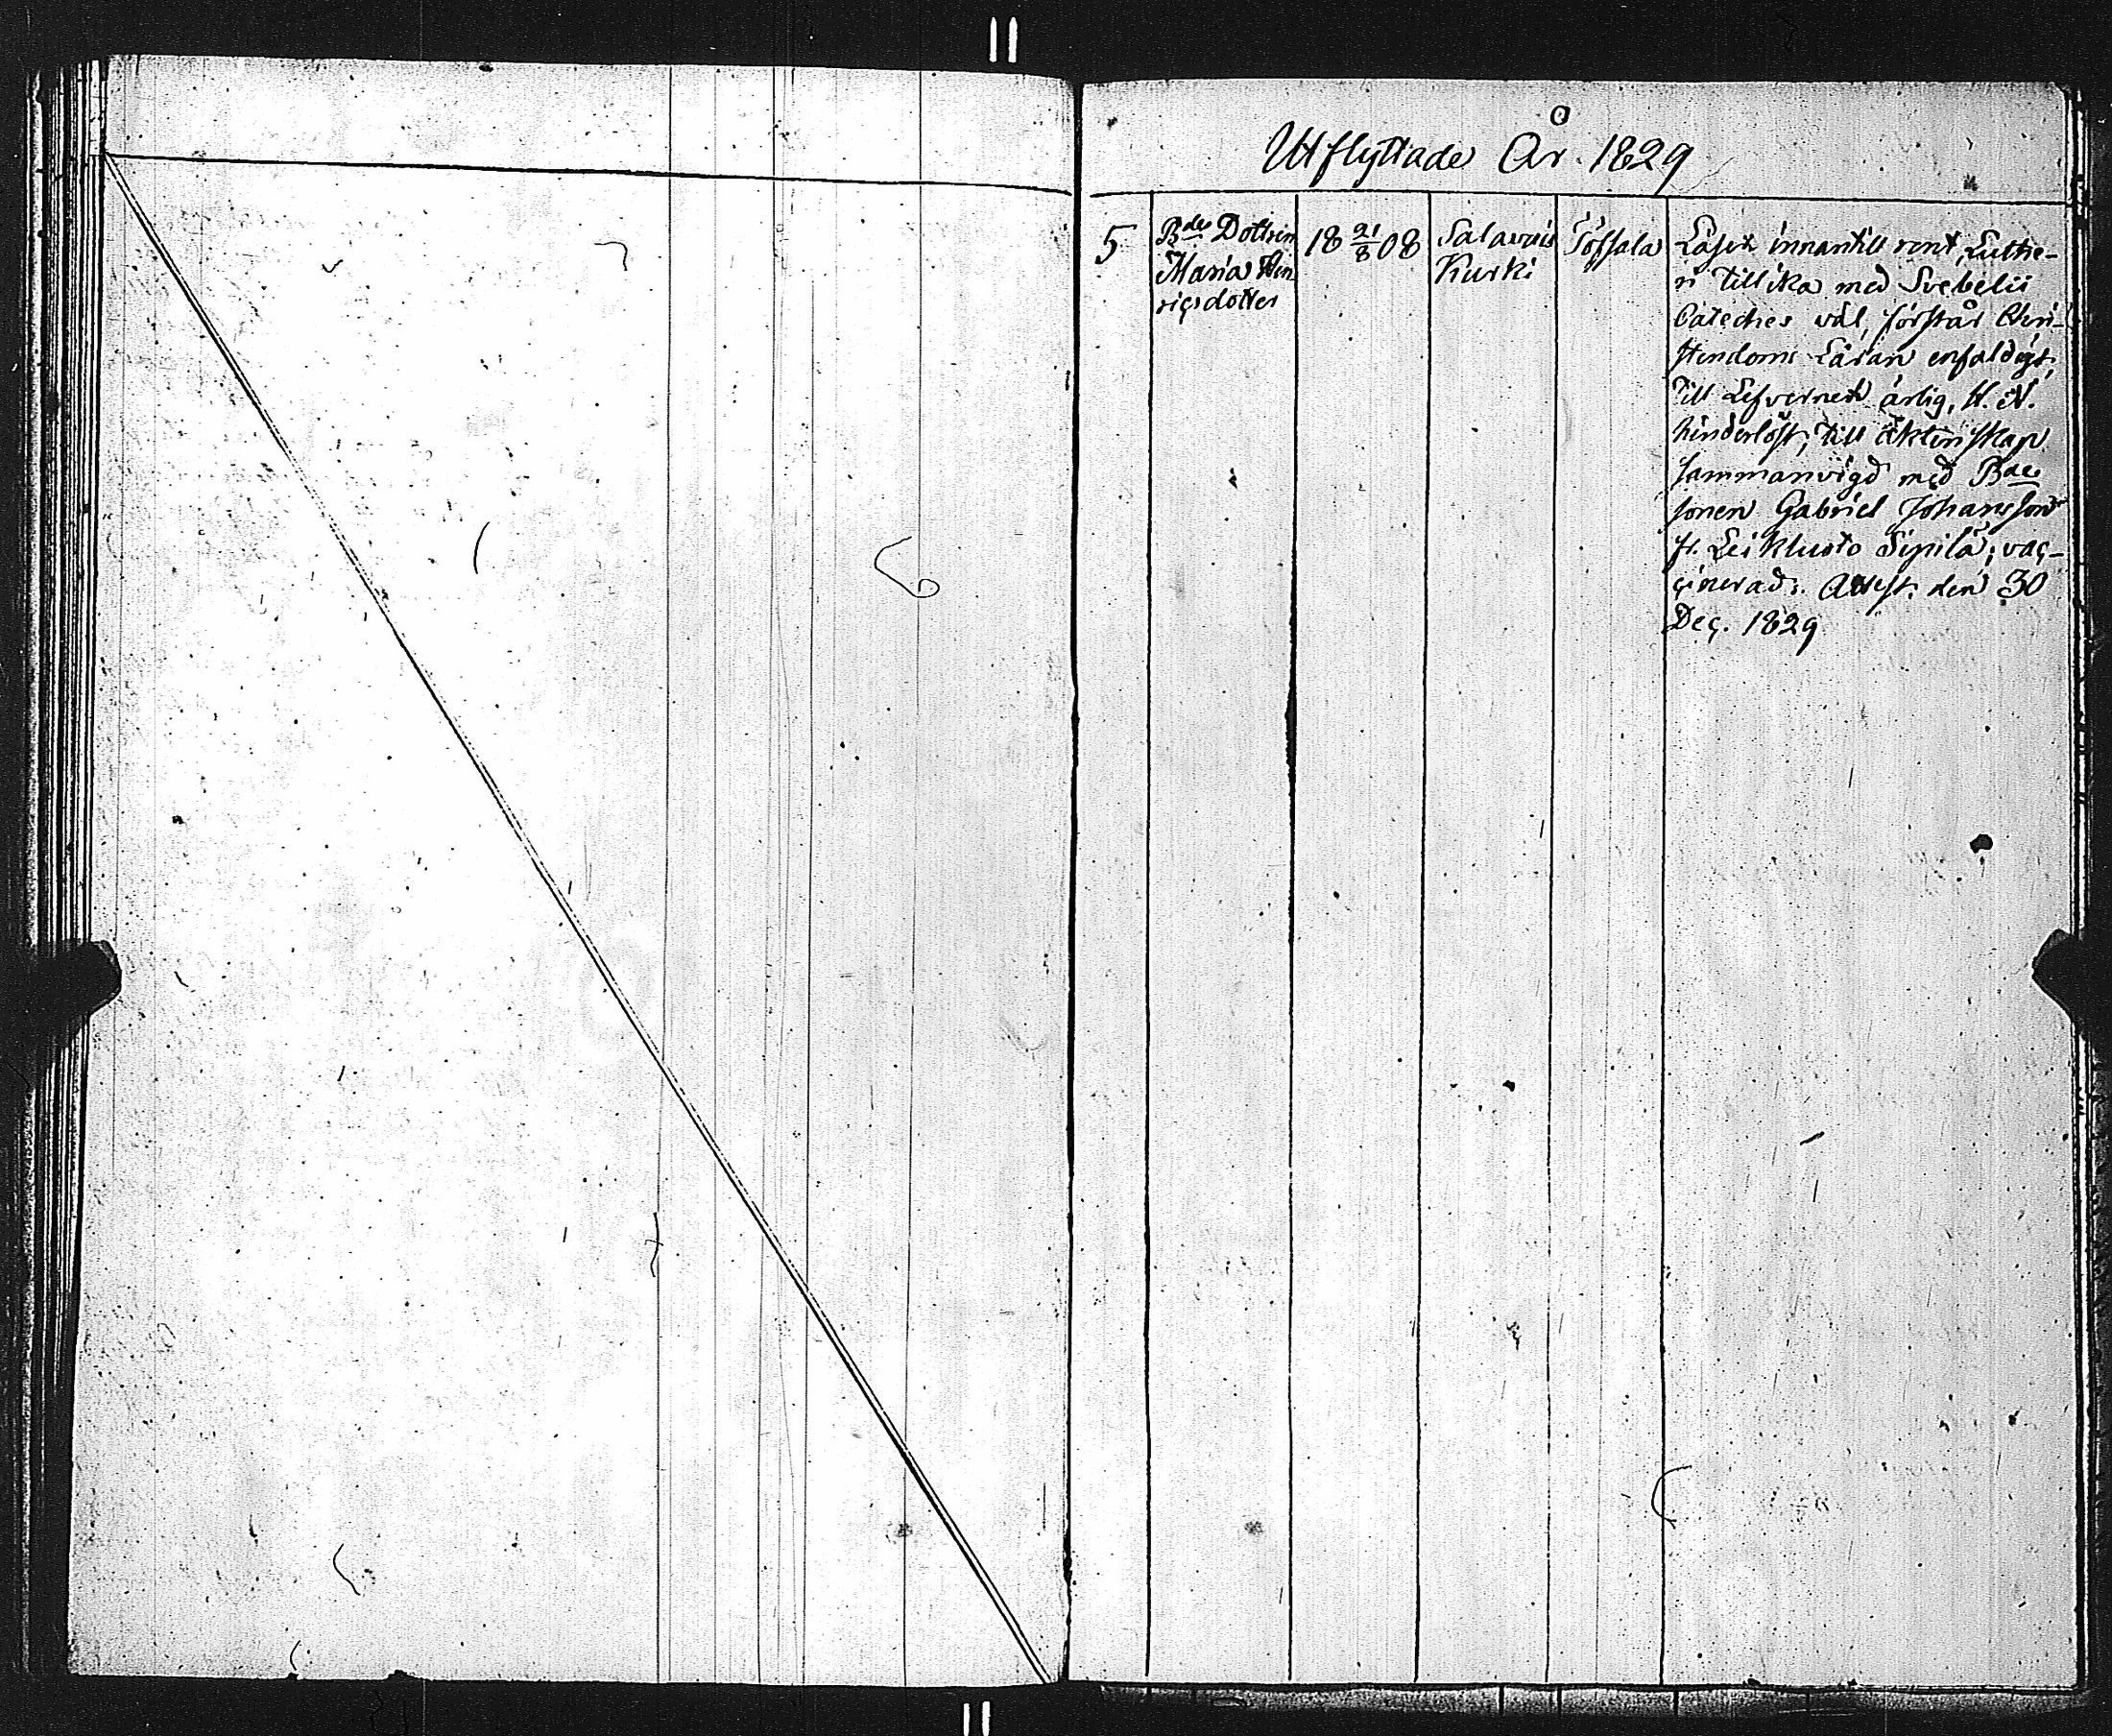 Utflyttade År 1829
5
Bdes Dottren
Maria Hin
riçsdotter
18 21/8 08
Salavais
Kurki
Töfsala
Läser innantill rent, Luthe-
ri tillika med Svebelii
Cateches väl, förstår Chri-
stendoms Läran enfaldigt,
till Lefvernet ärlig, H. N.
hinderlöst, till äktenskap
sammanvigd med Bde
sonen Gabriel Johansson
fr. Leikluoto Sipilä; vaç-
çinerad. Attest. den 30
Deç. 1829